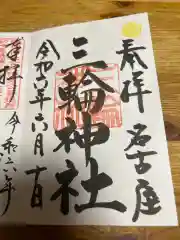 奉拝 名古屋
三輪神社
令和六年六月十日
奉拝
令和六年